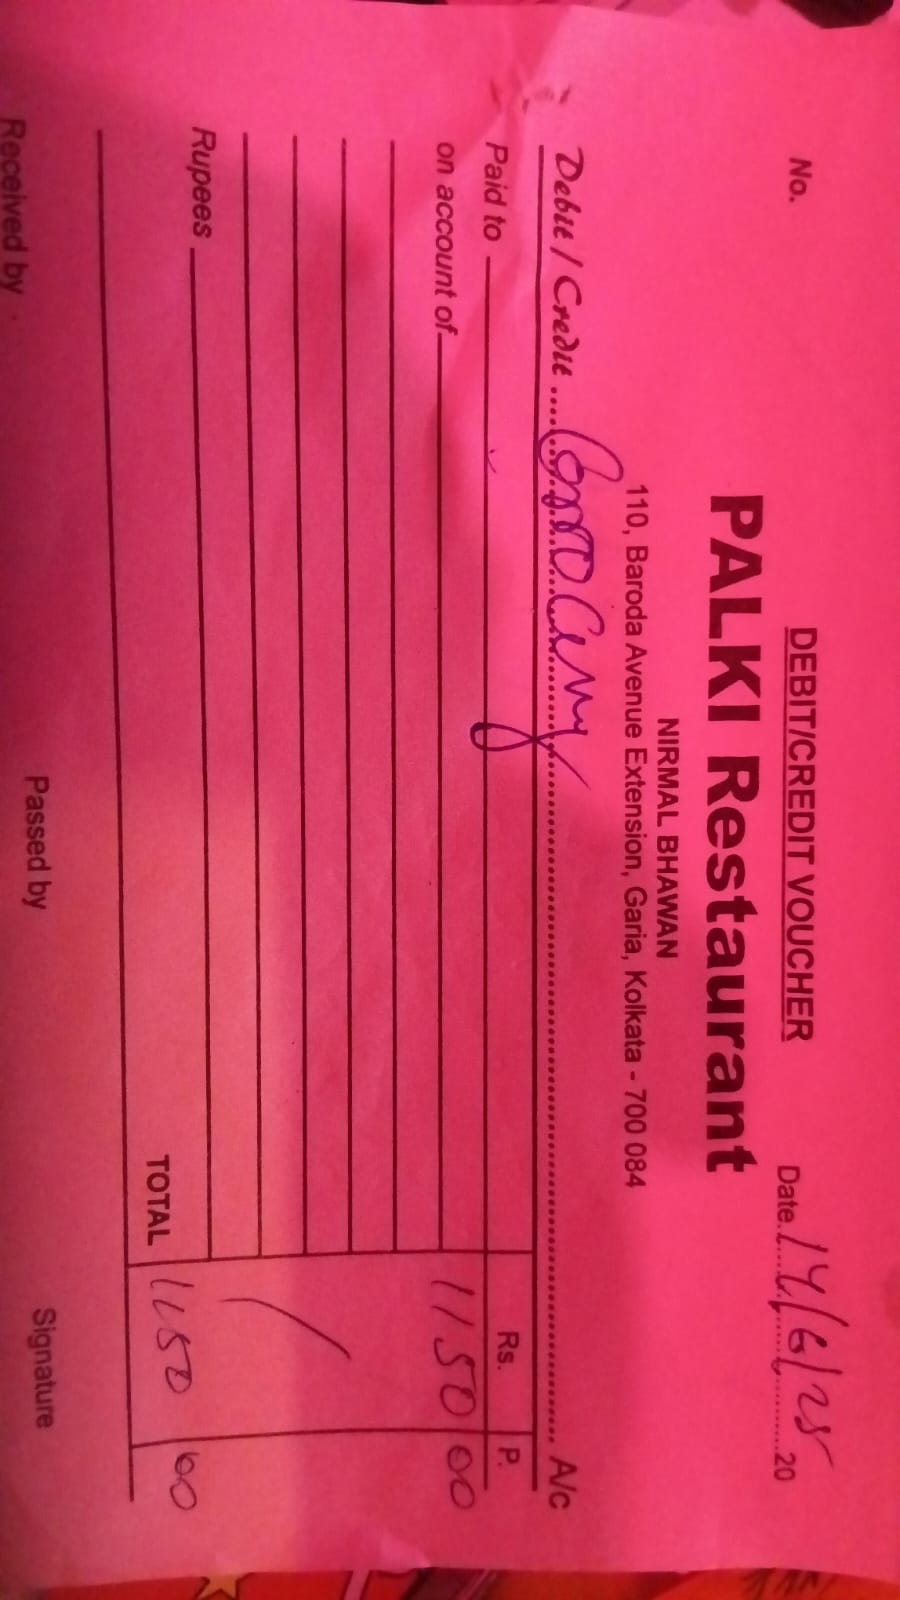 DEBIT/CREDIT VOUCHER
No. Date 14/6/25 20
PALKI Restaurant
NIRMAL BHAWAN
110, Baroda Avenue Extension, Garia, Kolkata - 700 084
Debit / Credit Grocery A/c
Paid to Rs. P.
on account of 1150 00
Rupees
TOTAL 1150 00
Received by Passed by Signature